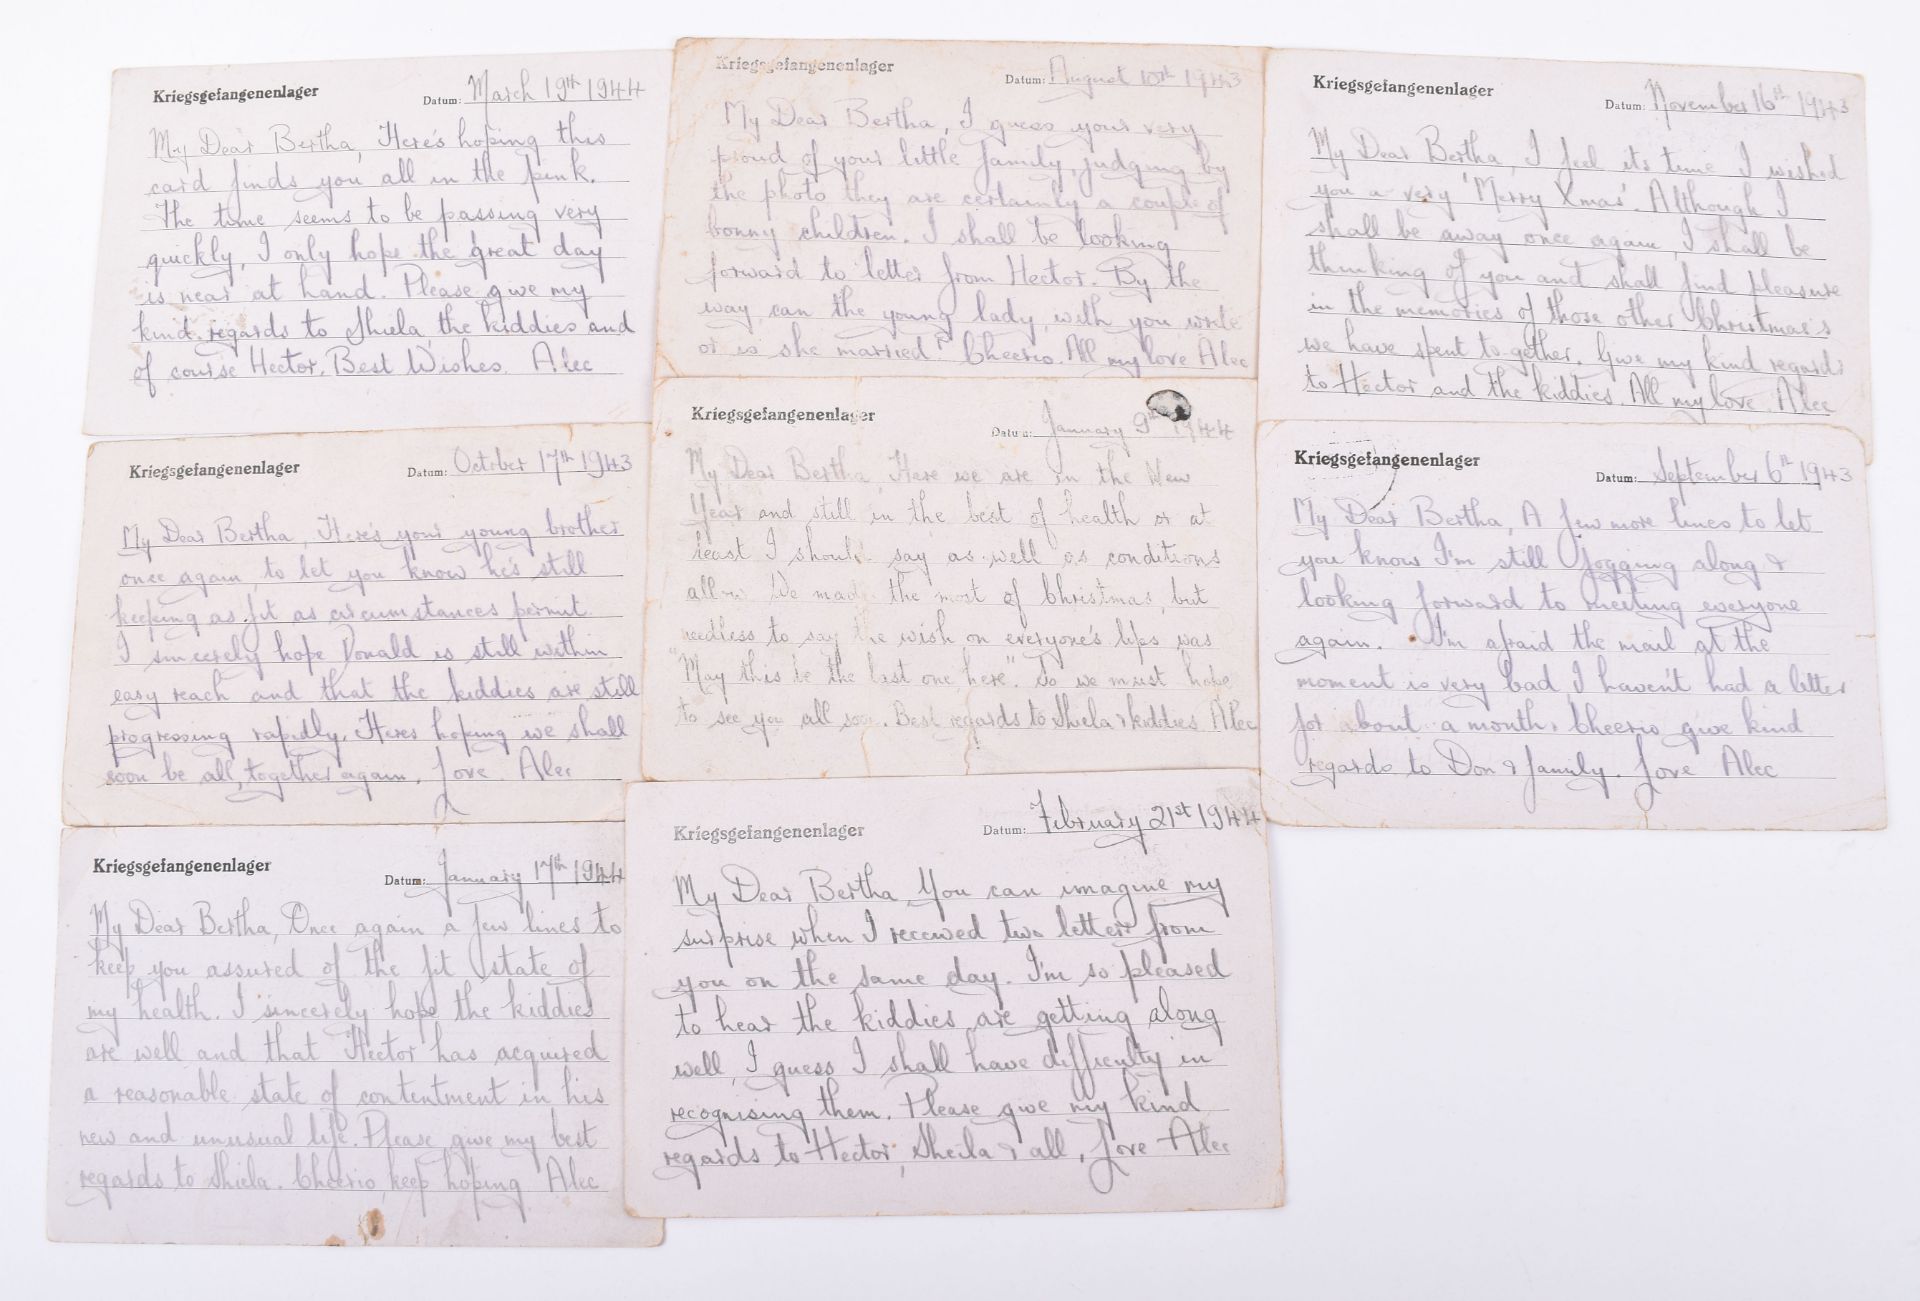 Kriegsgefangenenlager
Datum: March 19th 1944
My Dear Bertha, Here's hoping this
card finds you all in the pink.
The time seems to be passing very
quickly, I only hope the great day
is near at hand. Please give my
kind regards to Shiela, the kiddies and
of course Hector. Best Wishes. Alec
Kriegsgefangenenlager
Datum: August 10th 1943
My Dear Bertha, I guess your very
proud of your little family, judging by
the photo they are certainly a couple of
bonny children. I shall be looking
forward to letter from Hector. By the
way can the young lady with you write
or is she married? Cheerio. All my love Alec
Kriegsgefangenenlager
Datum: November 16th 1943
My Dear Bertha, I feel its time I wished
you a very 'Merry Xmas'. Although I
shall be away once again, I shall be
thinking of you and shall find pleasure
in the memories of those other Christmas's
we have spent to-gether. Give my kind regards
to Hector and the kiddies. All my love Alec
Kriegsgefangenenlager
Datum: October 17th 1943
My Dear Bertha, Here's your young brother
once again, to let you know he's still
keeping as fit as circumstances permit.
I sincerely hope Donald is still within
easy reach and that the kiddies are still
progressing rapidly. Heres hoping we shall
soon be all together again. Love Alec
Kriegsgefangenenlager
Datum: January 9th 1944
My Dear Bertha, Here we are in the New
Year and still in the best of health or at
least I should say as well as conditions
allow. We made the most of Christmas, but
needless to say the wish on everyone's lips was
"May this be the last one here". So we must hope
to see you all soon. Best regards to Shiela & kiddies Alec
Kriegsgefangenenlager
Datum: September 6th 1943
My Dear Bertha, A few more lines to let
you know I'm still jogging along &
looking forward to meeting everyone
again. I'm afraid the mail at the
moment is very bad I haven't had a letter
for about a month. Cheerio give kind
regards to Don & family. Love Alec
Kriegsgefangenenlager
Datum: January 17th 1944
My Dear Bertha, Once again a few lines to
keep you assured of the fit state of
my health. I sincerely hope the kiddies
are well and that Hector has acquired
a reasonable state of contentment in his
new and unusual life. Please give my best
regards to Shiela. Cheerio, keep hoping Alec
Kriegsgefangenenlager
Datum: February 21st 1944
My Dear Bertha, You can imagine my
surprise when I received two letters from
you on the same day. I'm so pleased
to hear the kiddies are getting along
well, I guess I shall have difficulty in
recognising them. Please give my kind
regards to Hector, Sheila & all. Love Alec